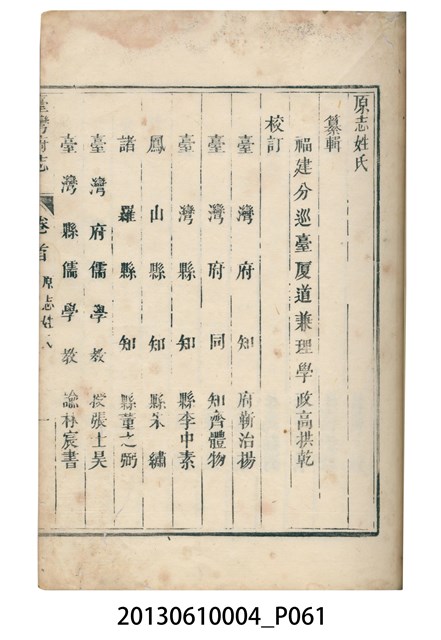 原志姓氏
纂輯
福建分巡臺厦道兼理學政高拱乾
校訂
臺灣府知府靳治揚
臺灣府同知齊體物
臺灣縣知縣李中素
鳳山縣知縣朱繡
諸羅縣知縣董之弼
臺灣府儒學教授張士昊
臺灣縣儒學教諭林宸書
臺灣府志 卷首 原志姓氏 一
20130610004_P061